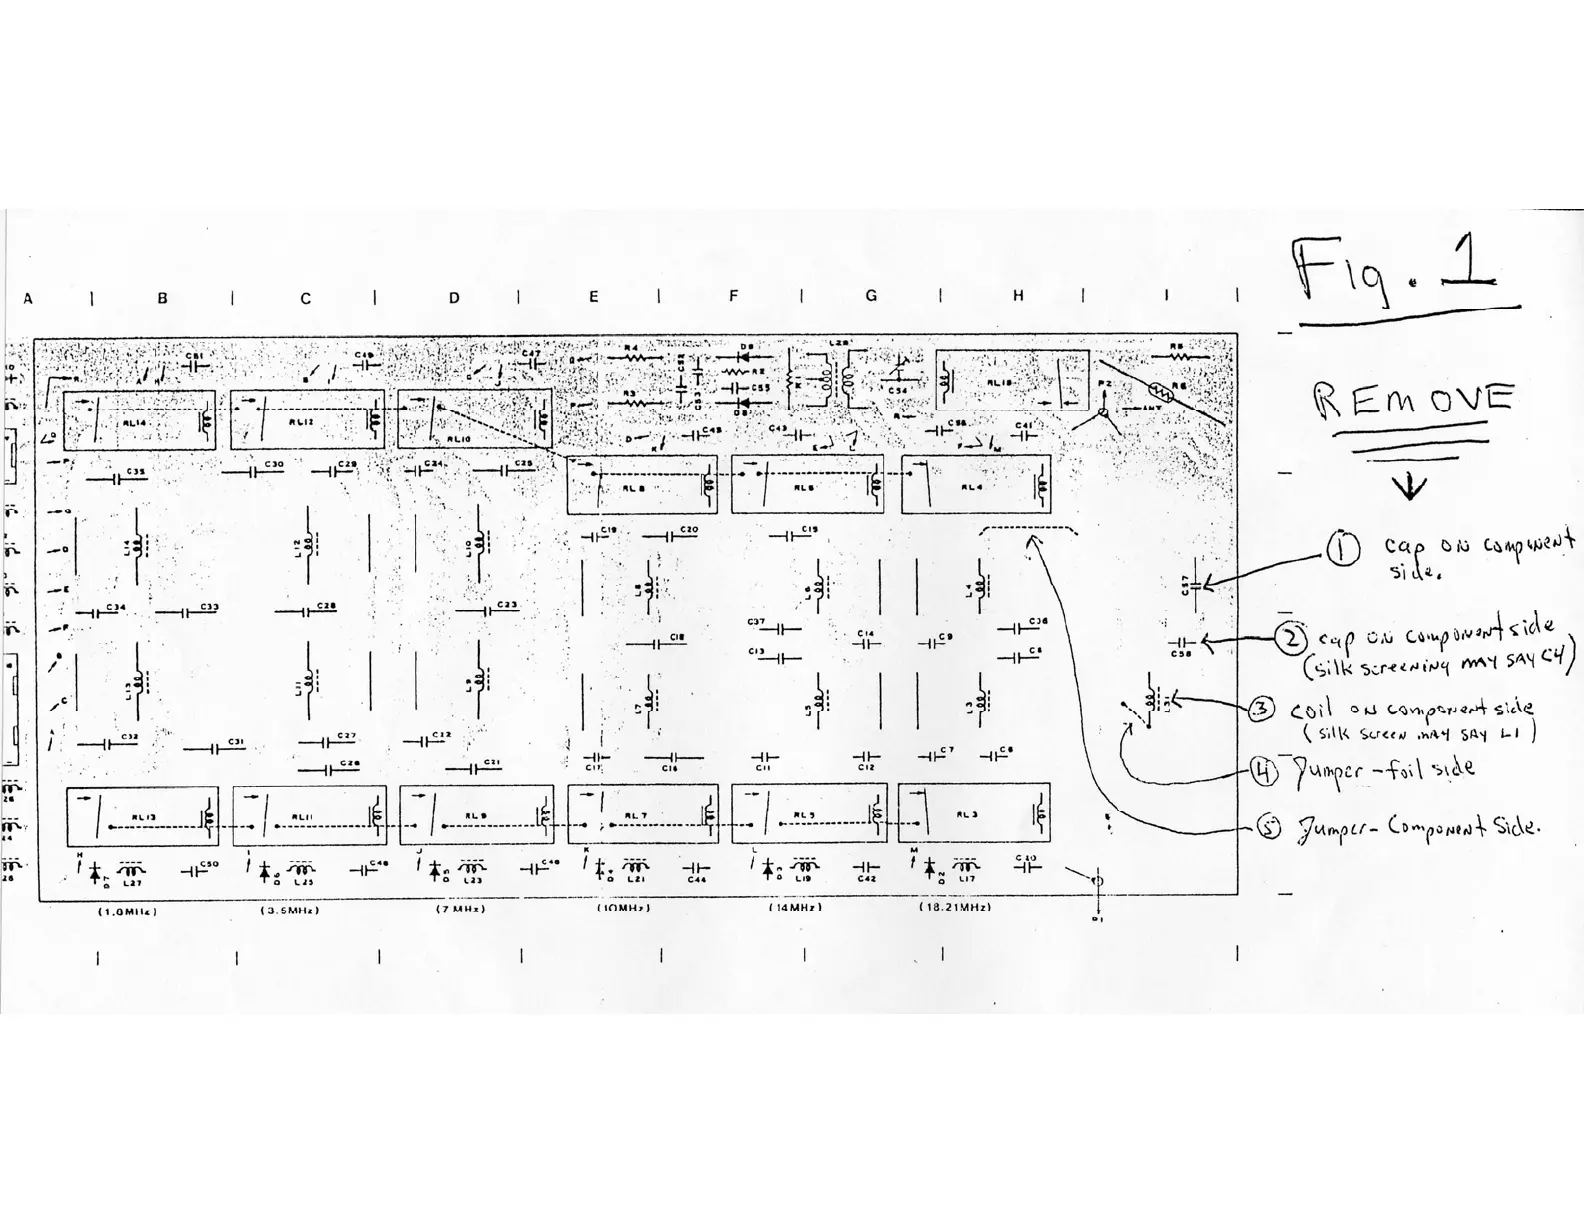 Fig. 1
A | B | C | D | E | F | G | H | I |
REMOVE
C51 C49 C47 R4 C52 D9 L28 R5
A H B I R2 C55 R1 C54 RL15 P2 R6
R3 C53 D8 ANT
RL14 RL12 RL10 D C45 C43 E C56 F M C41
C35 C30 C29 C24 C25 RL8 RL6 RL4
C19 C20 C15
L14 L12 L10
L8 L6 L4 C57
① cap on component
side.
C34 C33 C28 C23
C37 C36
C18 C14 C9 C58
C13 C8
② cap on component side
(silk screening may say C4)
L13 L11 L9 L7 L5 L3 L31
③ coil on component side
(silk screen may say L1)
C32 C31 C27 C22
C26 C21 C17 C16 C11 C12 C7 C6
④ Jumper - foil side
RL13 RL11 RL9 RL7 RL5 RL3
⑤ Jumper - Component Side.
H I J K L M
D7 L27 C50 D6 L25 C48 D5 L23 C46 D4 L21 C44 D3 L19 C42 D2 L17
(3.5MHz) (7 MHz) (10MHz) (14MHz) (18.21MHz)